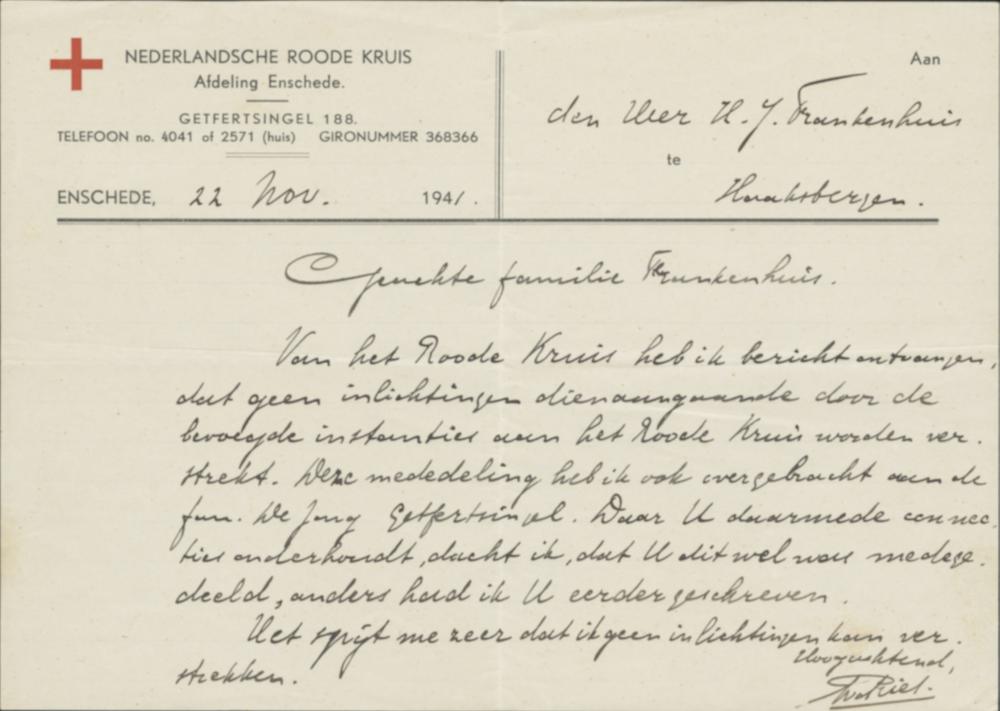 NEDERLANDSCHE ROODE KRUIS
Afdeling Enschede.
GETFERTSINGEL 188.
TELEFOON no. 4041 of 2571 (huis) GIRONUMMER 368366
ENSCHEDE, 22 Nov. 1941.
Aan
den Heer H. J. Frankenhuis
te
Haaksbergen.
Geachte familie Frankenhuis.
Van het Roode Kruis heb ik bericht ontvangen,
dat geen inlichtingen dienaangaande door de
bevoegde instanties aan het Roode Kruis worden ver-
strekt. Deze mededeling heb ik ook overgebracht aan de
fam. de Jong Getfertsingel. Daar U daarmede connec-
ties onderhoudt, dacht ik, dat U dit wel was medege-
deeld, anders had ik U eerder geschreven.
Het spijt me zeer dat ik geen inlichtingen kan ver-
strekken.
Hoogachtend,